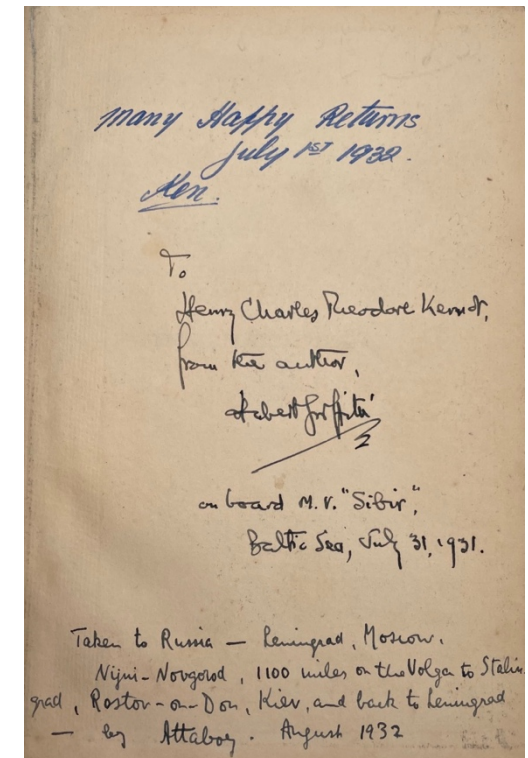 Many Happy Returns
July 1ST 1932.
Ken.
To
Henry Charles Theodore Kerndt,
from the author,
Hubert Griffith
on board M.V. "Sibir",
Baltic Sea, July 31, 1931.
Taken to Russia — Leningrad, Moscow.
Nijni-Novgorod, 1100 miles on the Volga to Stalin
grad, Rostov-on-Don, Kiev, and back to Leningrad
— by Attaboy. August 1932